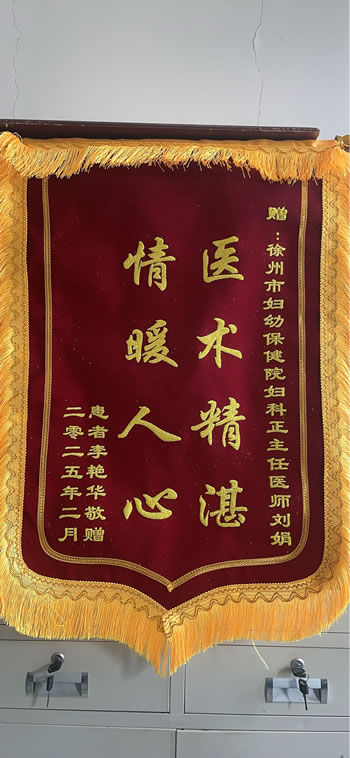 赠：徐州市妇幼保健院妇科正主任医师刘娟
医术精湛
情暖人心
患者李艳华敬赠
二零二五年二月